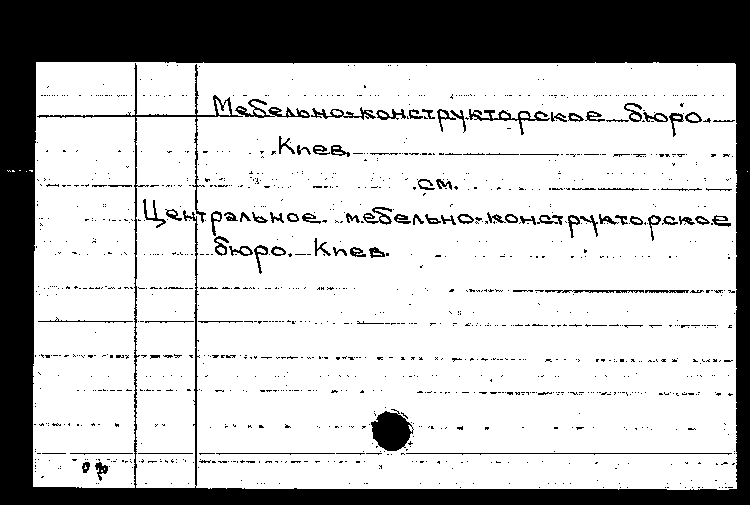 Мебельно-конструкторское бюро.
Киев.
см.
Центральное мебельно-конструкторское
бюро. Киев.